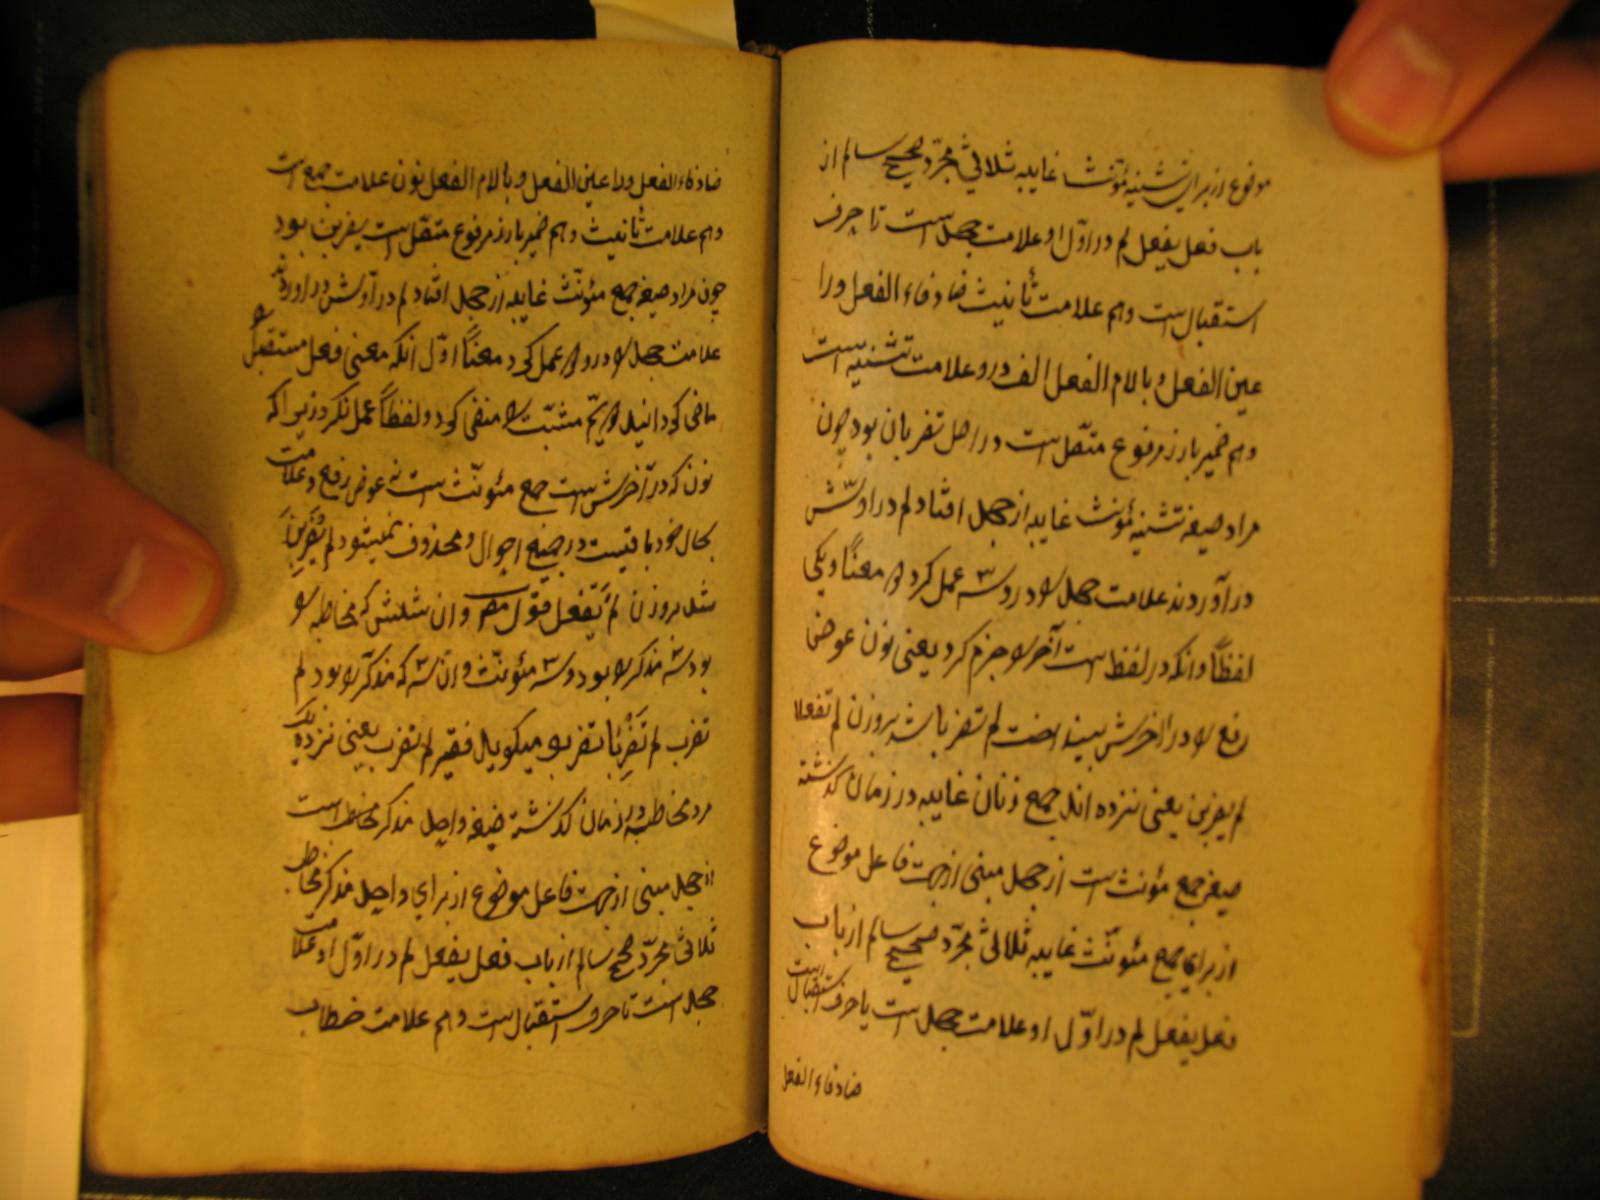 موضوع از برای تثنیه مؤنث غایبه ثلاثی مجرد صحیح سالم از
باب فعل یفعل لم در اوّل او علامت جحد است تا حرف
استقبال است و هم علامت تأنیث ضاد فاء الفعل و را
عین الفعل و با لام الفعل الف درو علامت تثنیه است
و هم ضمیر بارز مرفوع متصل است در اصل تضربان بود چون
مراد صیغه تثنیه مؤنث غایبه از جحد افتاد لم در اوّلش
در آوردند علامت جحد لا در وسه عمل کرد معناً و یکی
لفظاً و انکه در لفظ است آخر لا جزم کرد یعنی نون عوض
رفع لا در اخرش بینداخت لم تضربا شد بروزن لم تفعلا
لم یضربن یعنی نزده اند جمع زنان غایبه در زمان کذشته
صیغه جمع مؤنث است از جحد مبنی از جهت فاعل موضوع
از برای جمع مئونّث غایبه ثلاثی مجرّد صحیح سالم از باب
فعل یفعل لم در اوّل او علامت جحد است یا حرف استقبال است
ضاد فاء الفعل
ضاد فاء الفعل و را عین الفعل و با لام الفعل نون علامت جمع است
و هم علامت تأنیث و هم ضمیر بارز مرفوع متصل است یضربن بود
چون مراد صیغه جمع مئونّث غایبه از جحد افتاد لم در اوّلش در اوردند
علامت جحد لا درو عمل کرد معناً اوّل انکه معنی فعل مستقبل
ماضی کردانید مثبت لا منفی کرد و لفظاً عمل نکرد زیرا که
نون که در آخرش است جمع مئونّث است نه عوض رفع و علامت
بحال خود باقیست در جمیع احوال و محذوف نمیشود لم یضربن
شد بروزن لم یفعلن و ان شش که مخاطبه لا
بود سه مذکر لا بود و سه مئونّث و ان سه که مذکر لا بود لم
تضرب لم تضربا تضربو میکوید فقیر لم تضرب یعنی نزده یک
مرد مخاطب در زمان کذشته صیغه واحد مذکر مخاطب است
از جحد مبنی از جهت فاعل موضوع از برای واحد مذکر مخاطب
ثلاثی مجرّد صحیح سالم از باب فعل یفعل لم در اوّل او علامت
جحد است تا حرف استقبال است و هم علامت خطاب